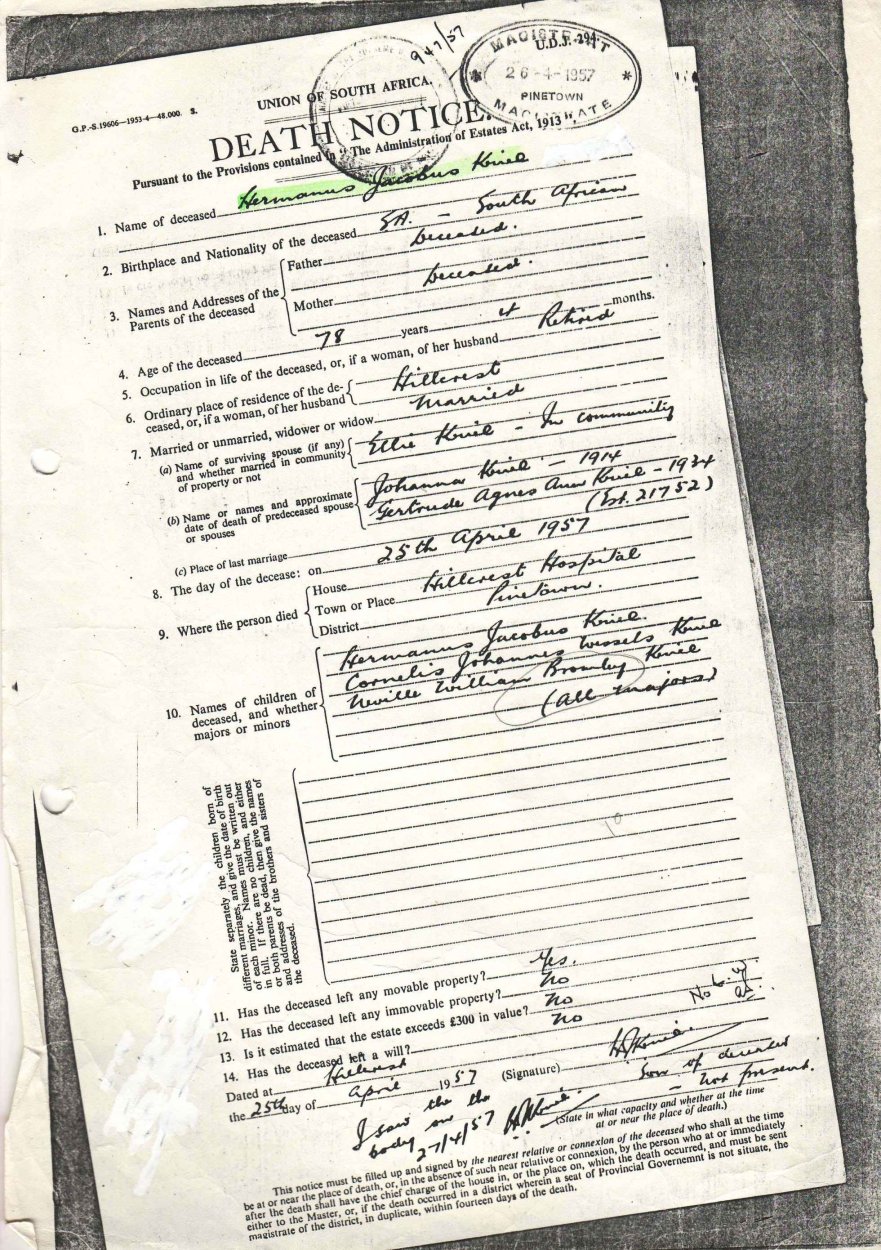 947/57
U.D.J.-294.
MAGISTRAAT
26-4-1957
PINETOWN
MAGISTRATE
G.P.-S.19606—1953-4—48.000. S.
UNION OF SOUTH AFRICA.
DEATH NOTICE.
Pursuant to the Provisions contained in "The Administration of Estates Act, 1913".
1. Name of deceased Hermanus Jacobus Kniel
2. Birthplace and Nationality of the deceased SA. – South African
3. Names and Addresses of the Parents of the deceased
Father Deceased.
Mother Deceased.
4. Age of the deceased 78 years months.
5. Occupation in life of the deceased, or, if a woman, of her husband Retired
6. Ordinary place of residence of the de-
ceased, or, if a woman, of her husband Hillcrest
7. Married or unmarried, widower or widow Married
(a) Name of surviving spouse (if any)
and whether married in community
of property or not
Ellie Kniel – In community
(b) Name or names and approximate
date of death of predeceased spouse
or spouses
Johanna Kniel – 1914
Gertrude Agnes Ann Kniel – 1934
(Est. 21752)
(c) Place of last marriage
8. The day of the decease: on 25th April 1957
9. Where the person died
House Hillcrest Hospital
Town or Place
District Pinetown.
10. Names of children of
deceased, and whether
majors or minors
Hermanus Jacobus Kniel.
Cornelis Johannes Wessels Kniel
Neville William Bromley Kniel
(All majors)
State separately the children born of
different marriages, and give the date of birth
of each minor. Names must be written out
in full. If there are no children, and either
or both parents be dead, then give the names
and addresses of the brothers and sisters of
the deceased.
10
11. Has the deceased left any movable property? Yes.
12. Has the deceased left any immovable property? No
13. Is it estimated that the estate exceeds £300 in value? No
14. Has the deceased left a will? No
Dated at Hillcrest
the 25th day of April 1957 (Signature) HJKniel.
Son of deceased
– not present.
(State in what capacity and whether at the time
at or near the place of death.)
I saw the
body on the
27/4/57 HJKniel.
This notice must be filled up and signed by the nearest relative or connexion of the deceased who shall at the time
be at or near the place of death, or, in the absence of such near relative or connexion, by the person who at or immediately
after the death shall have the chief charge of the house in, or the place on, which the death occurred, and must be sent
either to the Master, or, if the death occurred in a district wherein a seat of Provincial Governemnt is not situate, the
magistrate of the district, in duplicate, within fourteen days of the death.